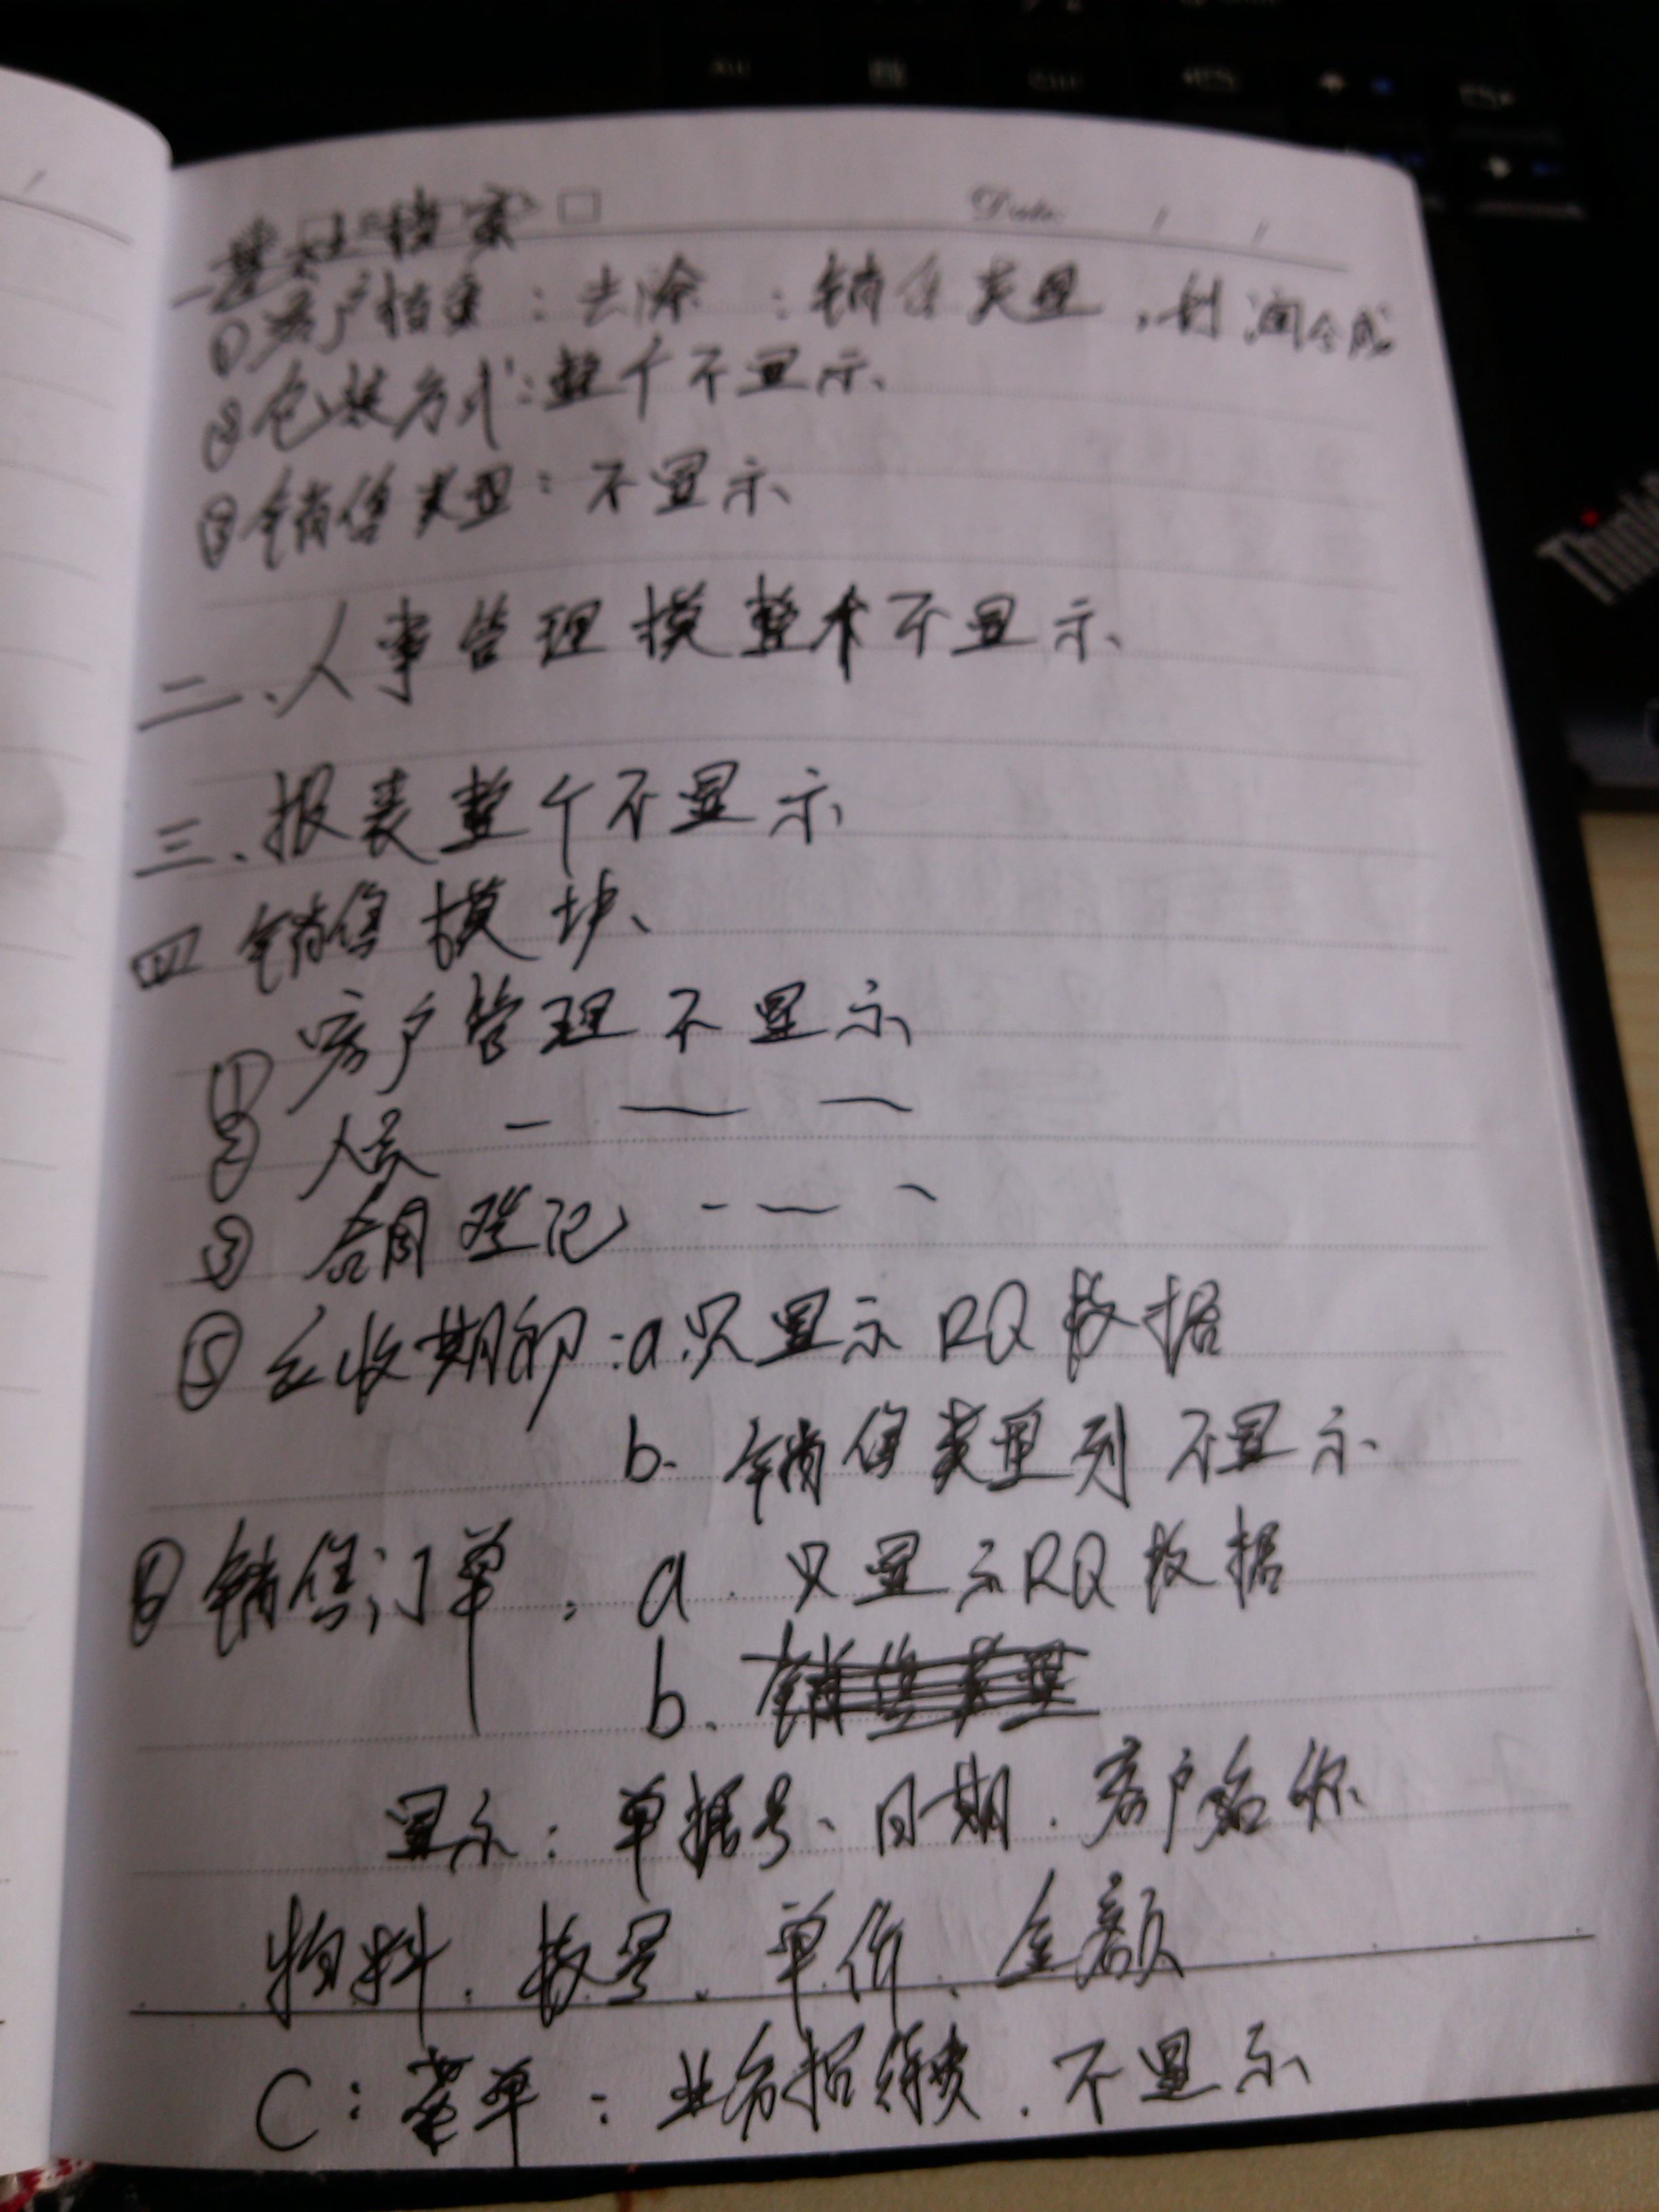 Date / /
一基本档案
①客户档案：去除：销售类型，利润合成
②包装方式：整个不显示、
③销售类型：不显示
二、人事管理模整个不显示、
三、报表整个不显示
四 销售模块、
① 客户管理不显示
② 人员 — — —
③ 合同登记 - — -
⑤ 应收期初：a.只显示RQ数据
b. 销售类型列不显示
⑥ 销售订单：a. 只显示RQ数据
b.
显示：单据号、日期.客户名称
物料、数量、单价、金额
C：菜单：业务招待费.不显示
Alt
Ctrl
Think